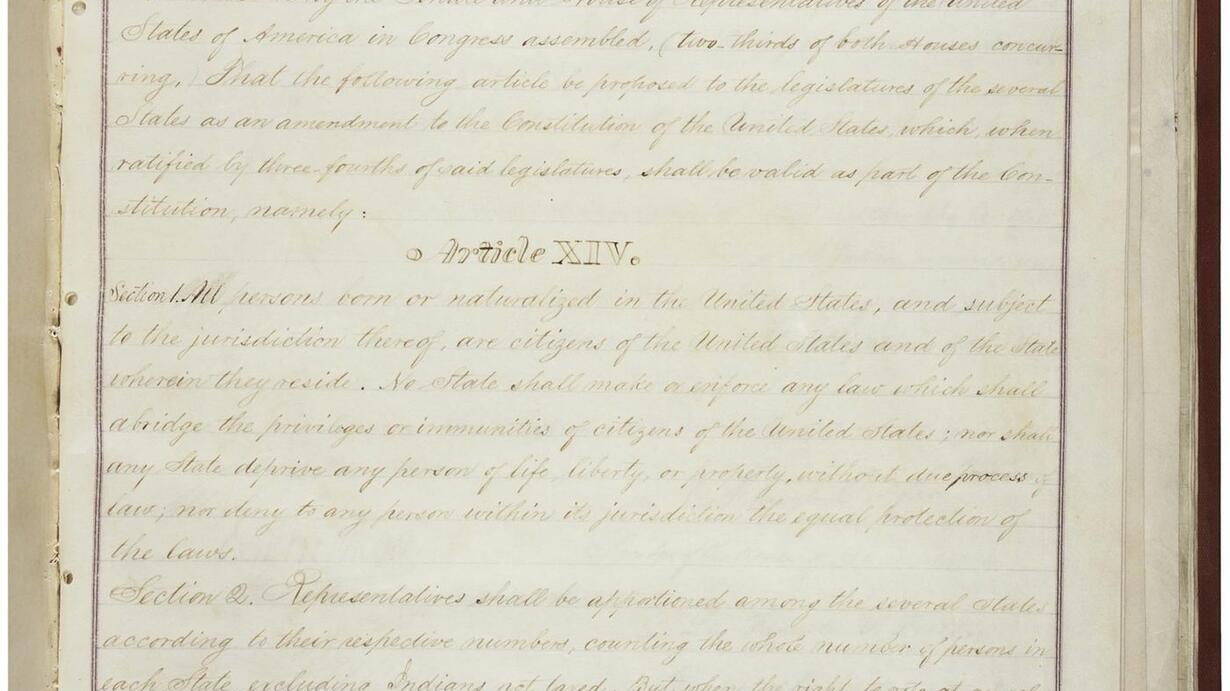 by the Senate and House of Representatives of the United
States of America in Congress assembled, (two-thirds of both Houses concur-
ring,) That the following article be proposed to the legislatures of the several
States as an amendment to the Constitution of the United States, which, when
ratified by three-fourths of said legislatures, shall be valid as part of the Con-
stitution, namely:
Article XIV.
Section 1. All persons born or naturalized in the United States, and subject
to the jurisdiction thereof, are citizens of the United States and of the State
wherein they reside. No State shall make or enforce any law which shall
abridge the privileges or immunities of citizens of the United States; nor shall
any State deprive any person of life, liberty, or property, without due process of
law; nor deny to any person within its jurisdiction the equal protection of
the laws.
Section 2. Representatives shall be apportioned among the several States
according to their respective numbers, counting the whole number of persons in
each State, excluding Indians not taxed. But when the right to vote at